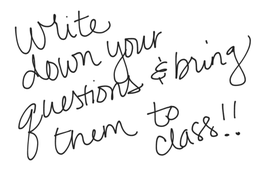 Write
down your
questions & bring
them to
class!!